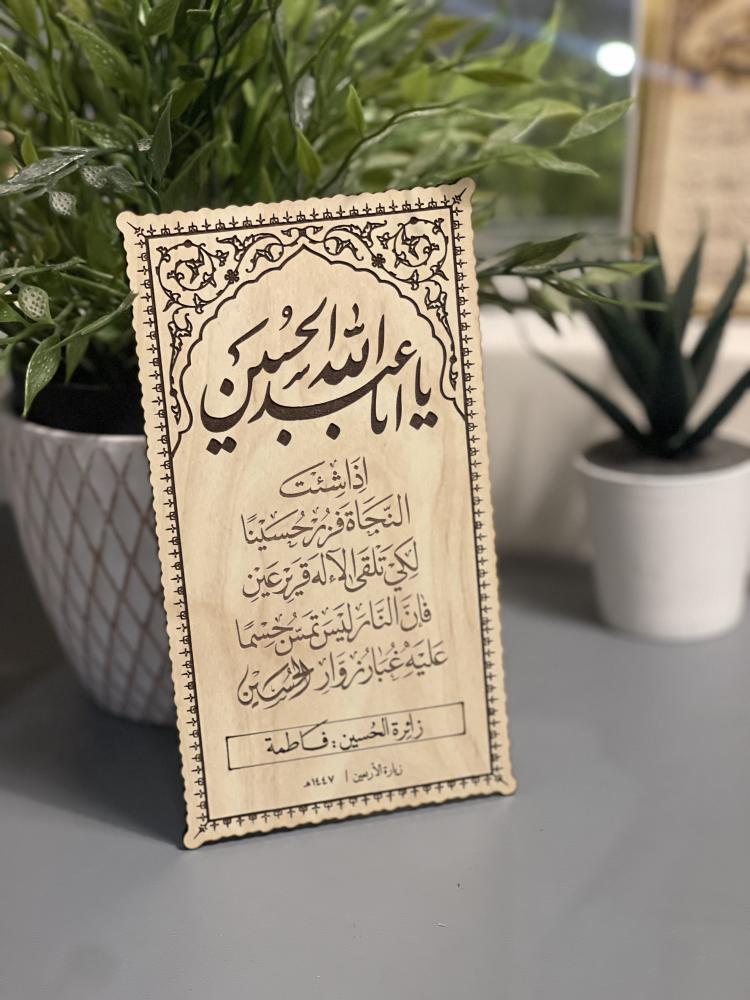 يا ابا عبد الله الحسين
اذا شئت
النّجاة فزر حسينًا
لكي تلقى الاله قرير عين
فان النار ليس تمس جسمًا
عليه غبار زوّار الحسين
زائرة الحسين : فاطمة
زيارة الأربعين | ١٤٤٧هـ